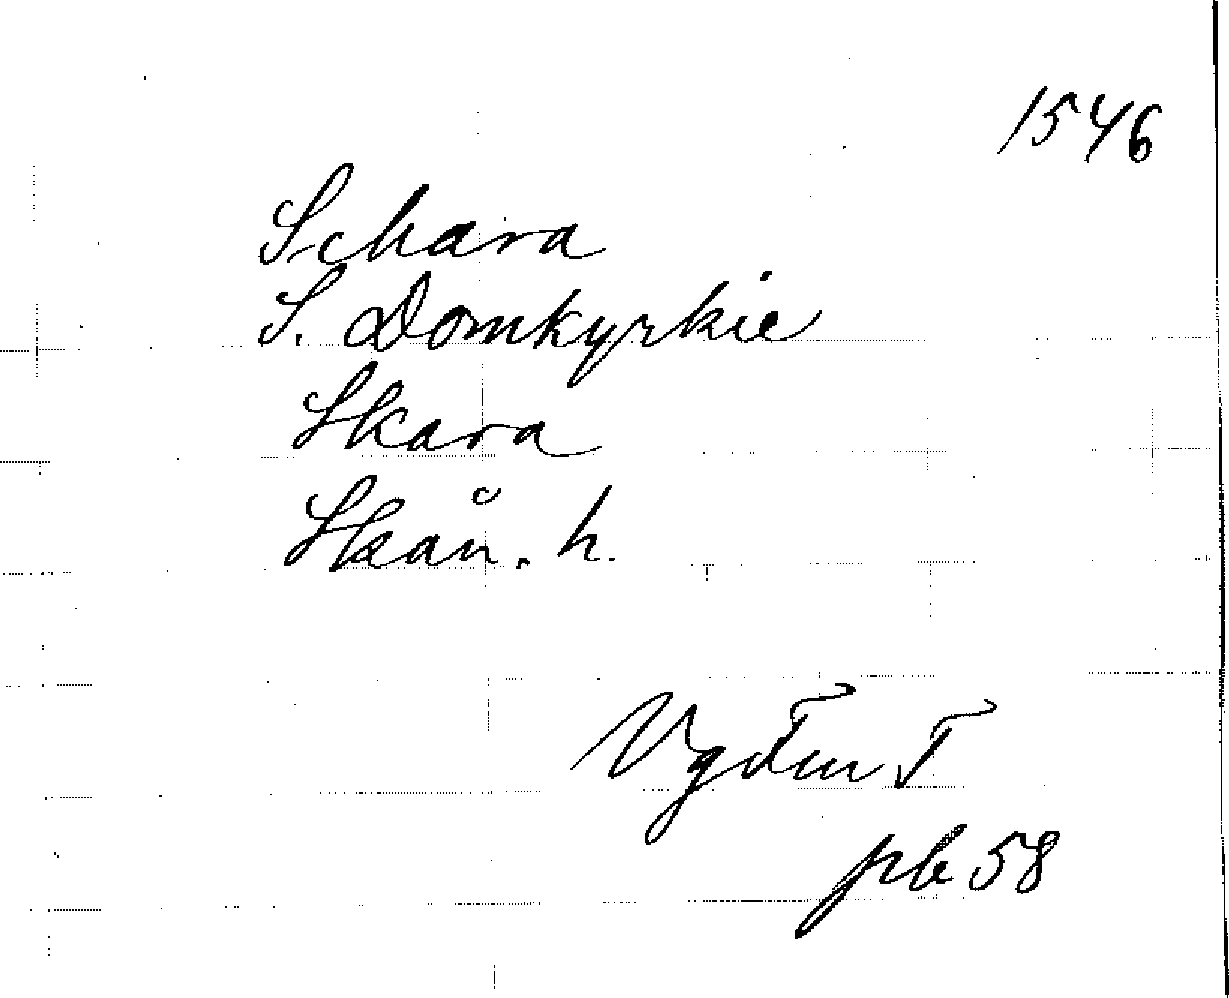 1546
Schara
S. Domkyrkie
Skara
Skån. h.
Vg Tiu T
pb 58